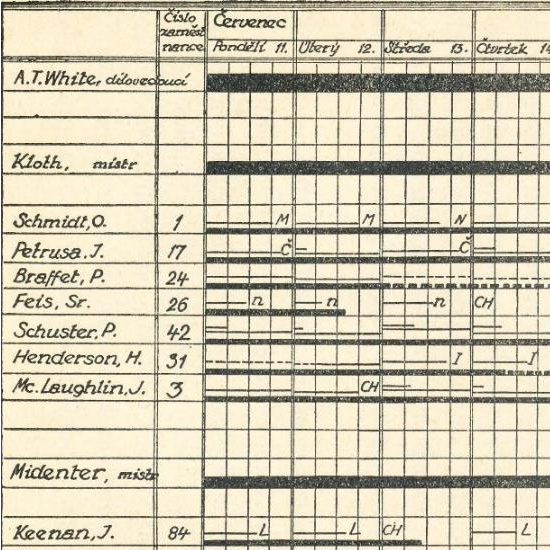 Číslo zaměst nance
Červenec
Pondělí 11. Úterý 12. Středa 13. Čtvrtek 14
A.T. White, dílovedoucí
Kloth, mistr
Schmidt, O. 1 M M N
Petrusa, J. 17 Č Č
Braffet, P. 24
Feis, Sr. 26 n n n CH
Schuster, P. 42
Henderson, H. 31 I I
Mc. Laughlin, J. 3 CH
Midenter, mistr
Keenan, J. 84 L L CH L